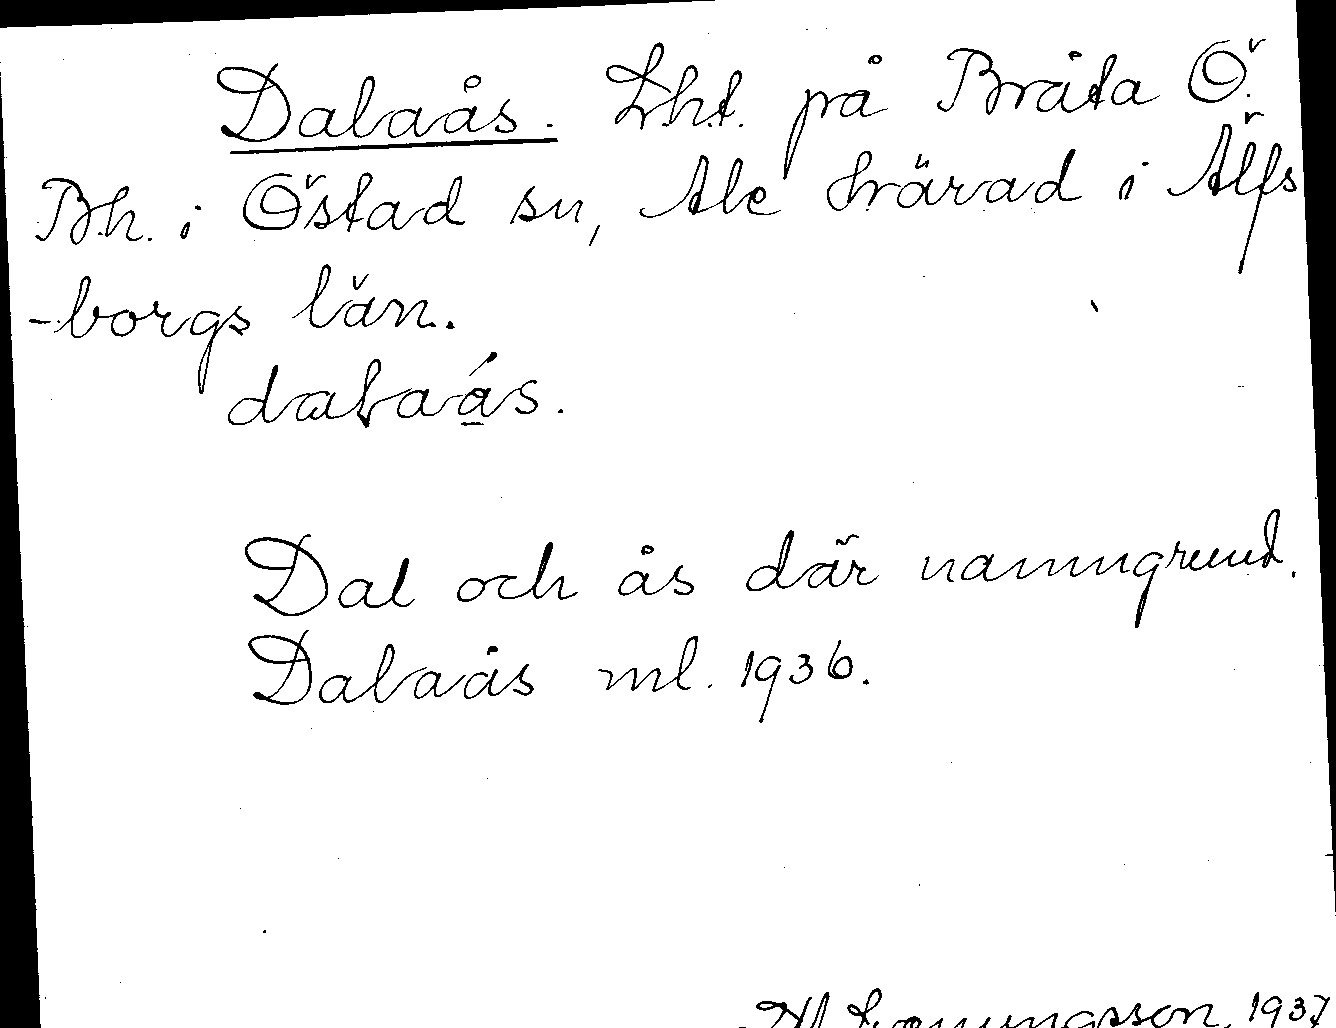 Dalaås. Lht. på Bråta Ö.
Bh. i Östad sn, Ale härad i Älfs
-borgs län.
dalaás.
Dal och ås där namngrund.
Dalaås ml. 1936.
1937